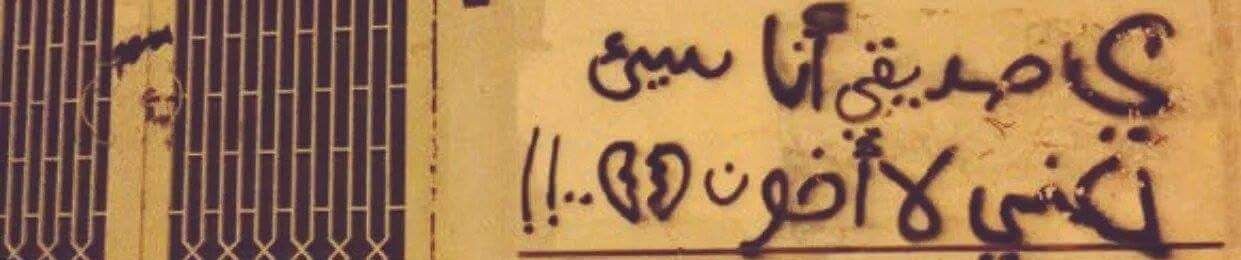 يا صديقي أنا سيئ
لكني لا أخون 💔..!!